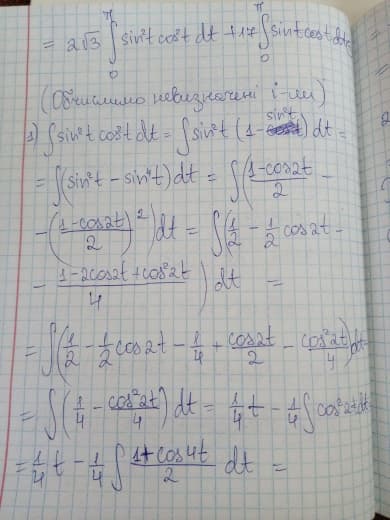 = 2√3 ∫₀^π sin²t cos²t dt + 17 ∫₀^π sint cost dt
(Обчислимо невизначені і-ли)
1) ∫ sin²t cos²t dt = ∫ sin²t (1 - sin²t) dt =
= ∫ (sin²t - sin⁴t) dt = ∫ ( (1-cos2t)/2 -
- ( (1-cos2t)/2 )² ) dt = ∫ ( 1/2 - 1/2 cos2t -
- (1-2cos2t+cos²2t)/4 ) dt =
= ∫ ( 1/2 - 1/2 cos2t - 1/4 + cos2t/2 - cos²2t/4 ) dt
= ∫ ( 1/4 - cos²2t/4 ) dt = 1/4 t - 1/4 ∫ cos²2t dt
= 1/4 t - 1/4 ∫ (1+cos4t)/2 dt =